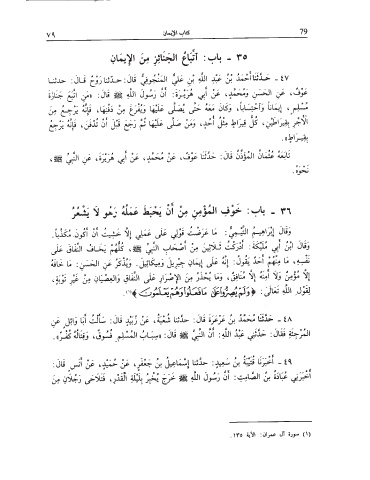 79 كتاب الإيمان ٧٩
٣٥ - باب: اتِّبَاعُ الجَنَائِزِ مِنَ الإِيمَانِ
٤٧ - حَدَّثَنَا أَحْمَدُ بْنُ عَبْدِ اللَّهِ بْنِ عَلِيٍّ المَنْجُوفِيُّ قَالَ: حَدَّثَنَا رَوْحٌ قَالَ: حدثنا
عَوْفٌ، عَنِ الحَسَنِ وَمُحَمَّدٍ، عَنْ أَبِي هُرَيْرَةَ: أَنَّ رَسُولَ اللَّهِ ﷺ قَالَ: «مَنِ اتَّبَعَ جَنَازَةَ
مُسْلِمٍ، إِيمَاناً وَاحْتِسَاباً، وَكَانَ مَعَهُ حَتَّى يُصَلَّى عَلَيْهَا وَيُفْرَغَ مِنْ دَفْنِهَا، فَإِنَّهُ يَرْجِعُ مِنَ
الأَجْرِ بِقِيرَاطَيْنِ، كُلُّ قِيرَاطٍ مِثْلُ أُحُدٍ، وَمَنْ صَلَّى عَلَيْهَا ثُمَّ رَجَعَ قَبْلَ أَنْ تُدْفَنَ، فَإِنَّهُ يَرْجِعُ
بِقِيرَاطٍ».
تَابَعَهُ عُثْمَانُ المُؤَذِّنُ قَالَ: حَدَّثَنَا عَوْفٌ، عَنْ مُحَمَّدٍ، عَنْ أَبِي هُرَيْرَةَ، عَنِ النَّبِيِّ ﷺ،
نَحْوَهُ.
٣٦ - باب: خَوْفِ المُؤْمِنِ مِنْ أَنْ يَحْبَطَ عَمَلُهُ وَهُوَ لَا يَشْعُرُ
وَقَالَ إِبْرَاهِيمُ التَّيْمِيُّ: مَا عَرَضْتُ قَوْلِي عَلَى عَمَلِي إِلَّا خَشِيتُ أَنْ أَكُونَ مُكَذِّباً.
وَقَالَ ابْنُ أَبِي مُلَيْكَةَ: أَدْرَكْتُ ثَلَاثِينَ مِنْ أَصْحَابِ النَّبِيِّ ﷺ، كُلُّهُمْ يَخَافُ النِّفَاقَ عَلَى
نَفْسِهِ، مَا مِنْهُمْ أَحَدٌ يَقُولُ: إِنَّهُ عَلَى إِيمَانِ جِبْرِيلَ وَمِيكَائِيلَ. وَيُذْكَرُ عَنِ الحَسَنِ: مَا خَافَهُ
إِلَّا مُؤْمِنٌ وَلَا أَمِنَهُ إِلَّا مُنَافِقٌ، وَمَا يُحْذَرُ مِنَ الإِصْرَارِ عَلَى النِّفَاقِ وَالعِصْيَانِ مِنْ غَيْرِ تَوْبَةٍ،
لِقَوْلِ اللَّهِ تَعَالَى: ﴿وَلَمْ يُصِرُّوا عَلَىٰ مَا فَعَلُوا وَهُمْ يَعْلَمُونَ﴾(١).
٤٨ - حَدَّثَنَا مُحَمَّدُ بْنُ عَرْعَرَةَ قَالَ: حَدَّثَنَا شُعْبَةُ، عَنْ زُبَيْدٍ قَالَ: سَأَلْتُ أَبَا وَائِلٍ عَنِ
المُرْجِئَةِ فَقَالَ: حَدَّثَنِي عَبْدُ اللَّهِ: أَنَّ النَّبِيَّ ﷺ قَالَ: «سِبَابُ المُسْلِمِ فُسُوقٌ، وَقِتَالُهُ كُفْرٌ».
٤٩ - أَخْبَرَنَا قُتَيْبَةُ بْنُ سَعِيدٍ: حدثنا إِسْمَاعِيلُ بْنُ جَعْفَرٍ، عَنْ حُمَيْدٍ، عَنْ أَنَسٍ قَالَ:
أَخْبَرَنِي عُبَادَةُ بْنُ الصَّامِتِ: أَنَّ رَسُولَ اللَّهِ ﷺ خَرَجَ يُخْبِرُ بِلَيْلَةِ القَدْرِ، فَتَلَاحَى رَجُلَانِ مِنَ
(١) سورة آل عمران: الآية ١٣٥.